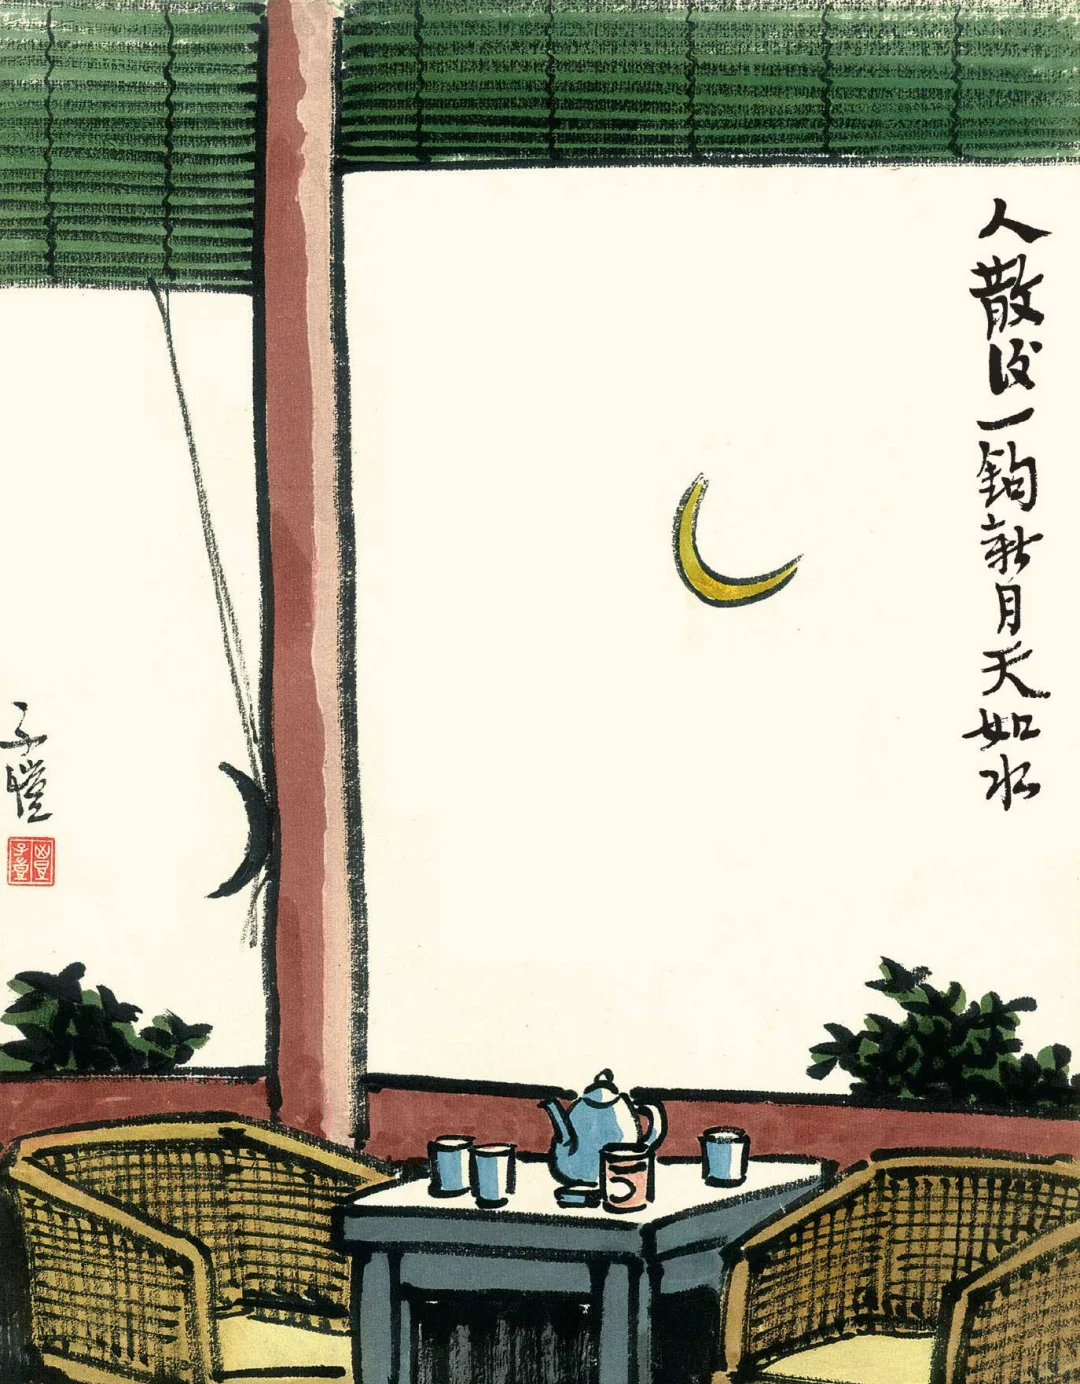 人散后一鈎新月天如水
子愷
豐子愷